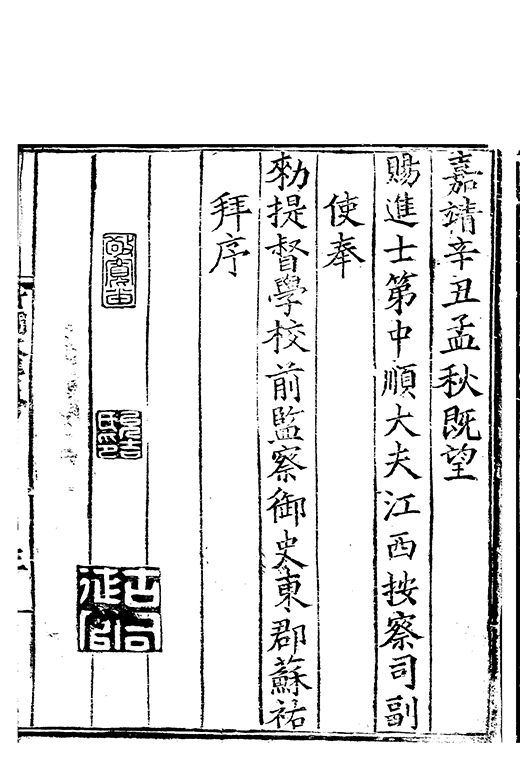 嘉靖辛丑孟秋既望
賜進士第中順大夫江西按察司副
使奉
勑提督學校前監察御史東郡蘇祐
拜序